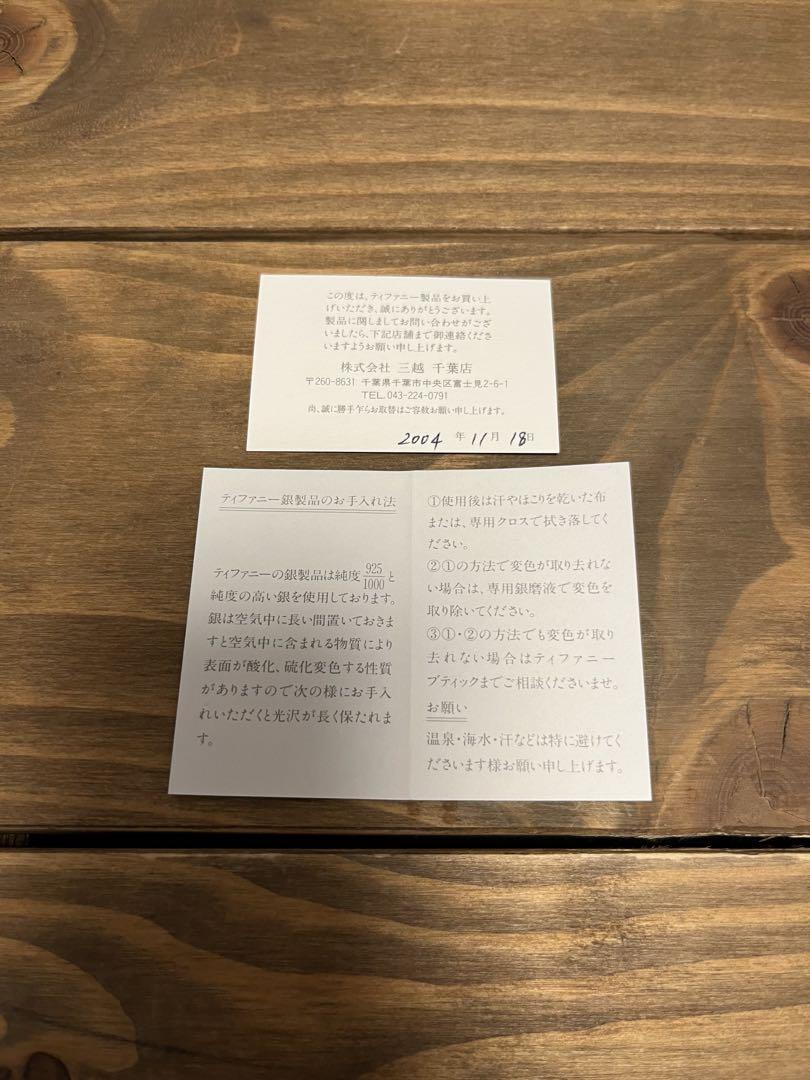 この度は、ティファニー製品をお買い上
げいただき、誠にありがとうございます。
製品に関しましてお問い合わせがござ
いましたら、下記店舗まで御連絡くださ
いますようお願い申し上げます。
株式会社 三越 千葉店
〒260-8631 千葉県千葉市中央区富士見2-6-1
TEL.043-224-0791
尚、誠に勝手乍らお取替はご容赦お願い申し上げます。
2004年11月18日
ティファニー銀製品のお手入れ法
ティファニーの銀製品は純度925/1000と
純度の高い銀を使用しております。
銀は空気中に長い間置いておきま
すと空気中に含まれる物質により
表面が酸化、硫化変色する性質
がありますので次の様にお手入
れいただくと光沢が長く保たれま
す。
①使用後は汗やほこりを乾いた布
または、専用クロスで拭き落してく
ださい。
②①の方法で変色が取り去れな
い場合は、専用銀磨液で変色を
取り除いてください。
③①・②の方法でも変色が取り
去れない場合はティファニー
ブティックまでご相談くださいませ。
お願い
温泉・海水・汗などは特に避けてく
ださいます様お願い申し上げます。